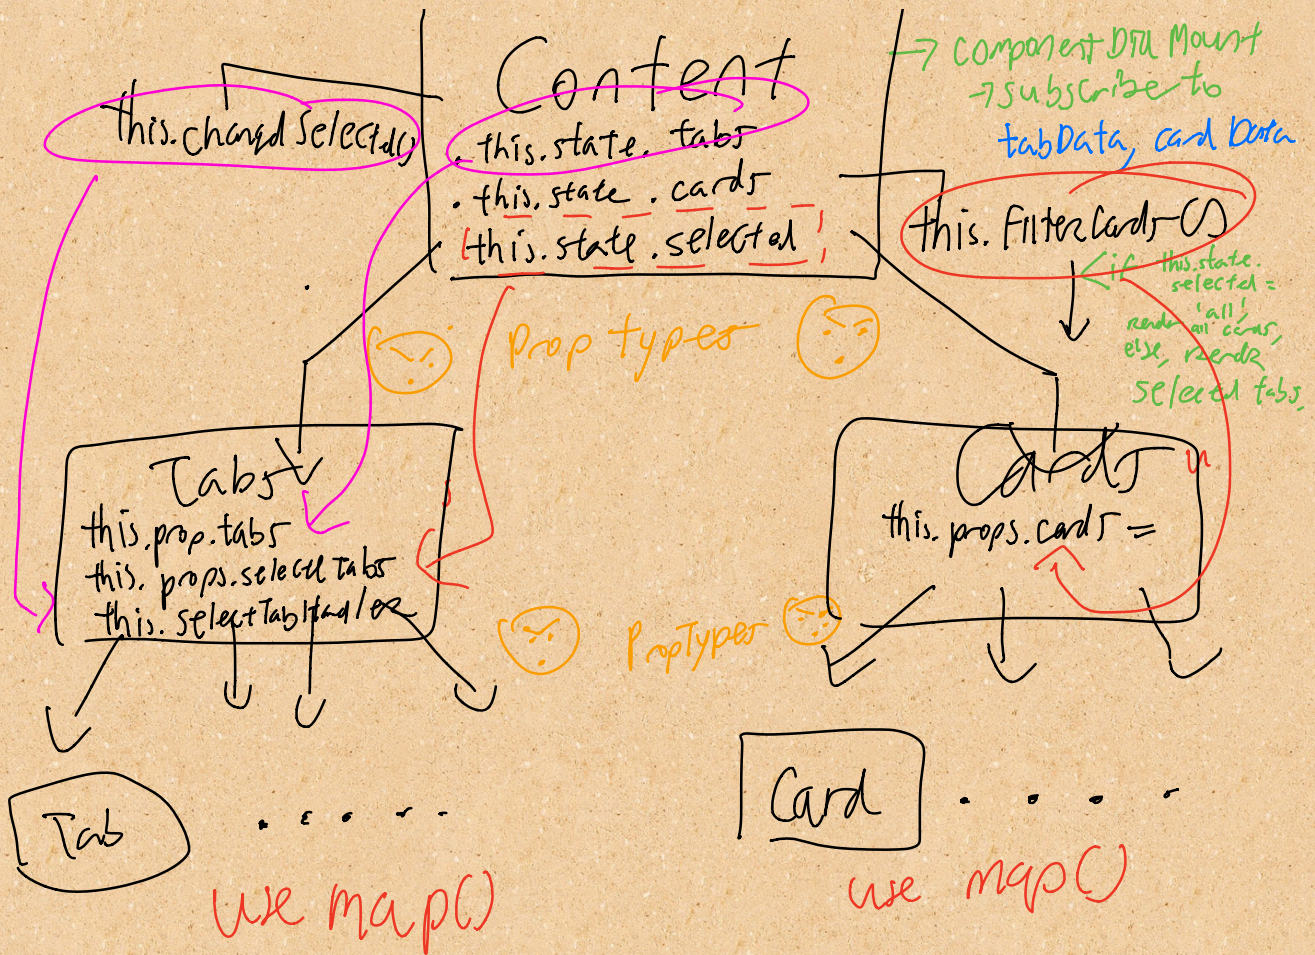 Content
this.changdSelected()
. this.state.tabs
. this.state.cards
this.state.selected
→ componentDid Mount
→ subscribe to
tabData, cardData
this.filterCards()
if this.state.
selected =
'all',
render all cards,
else, render
selected tabs,
Prop types
Tabs
this.prop.tabs
this.props.selectedTabs
this.selectTabHandler
Cards
this.props.cards =
PropTypes
Tab
Card
use map()
use map()